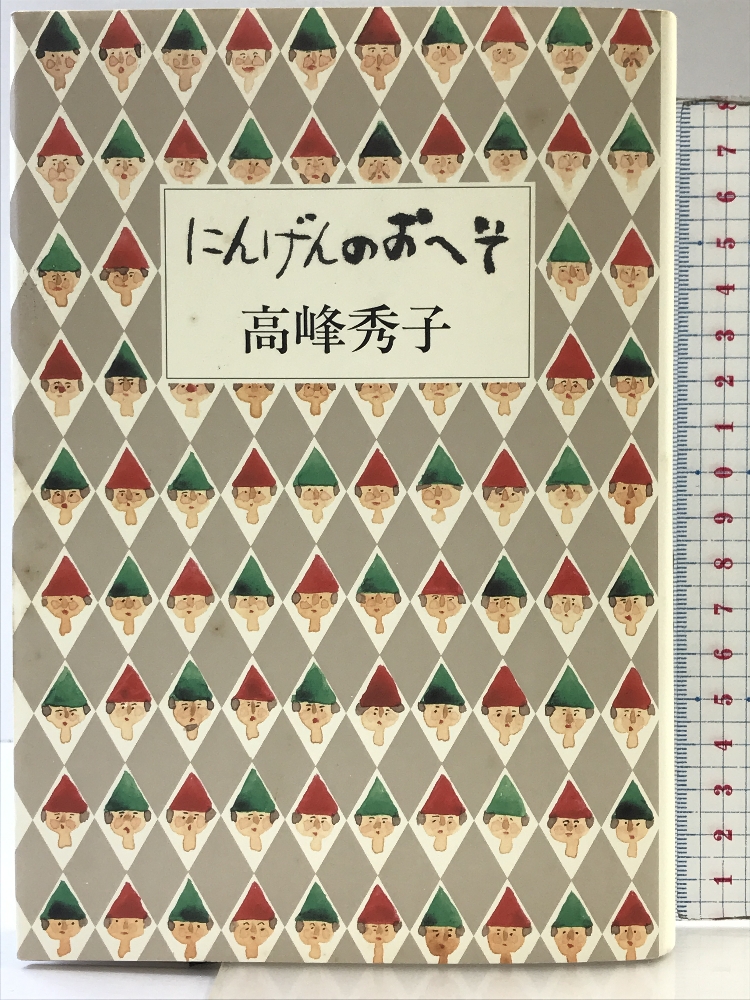 にんげんのおへそ
高峰秀子
8
7
6
5
4
3
2
1
0
9
8
7
6
5
4
3
2
1